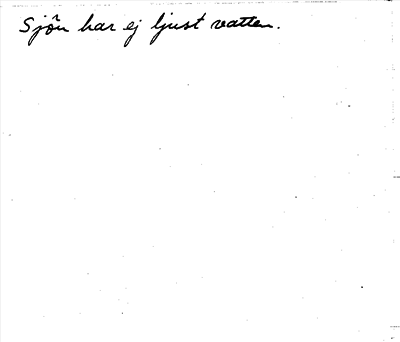 Sjön har ej ljust vatten.